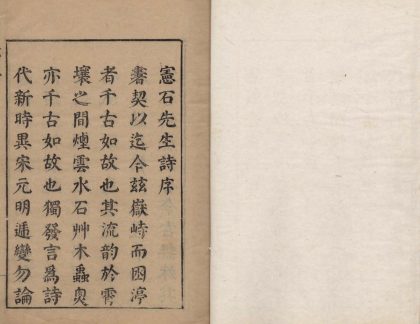 憲石先生詩序
書契以迄今玆嶽峙而困渟
者千古如故也其流韵於霄
壤之間煙雲水石艸木蟲奐
亦千古如故也獨發言爲詩
代新時異宋元明遞變勿論